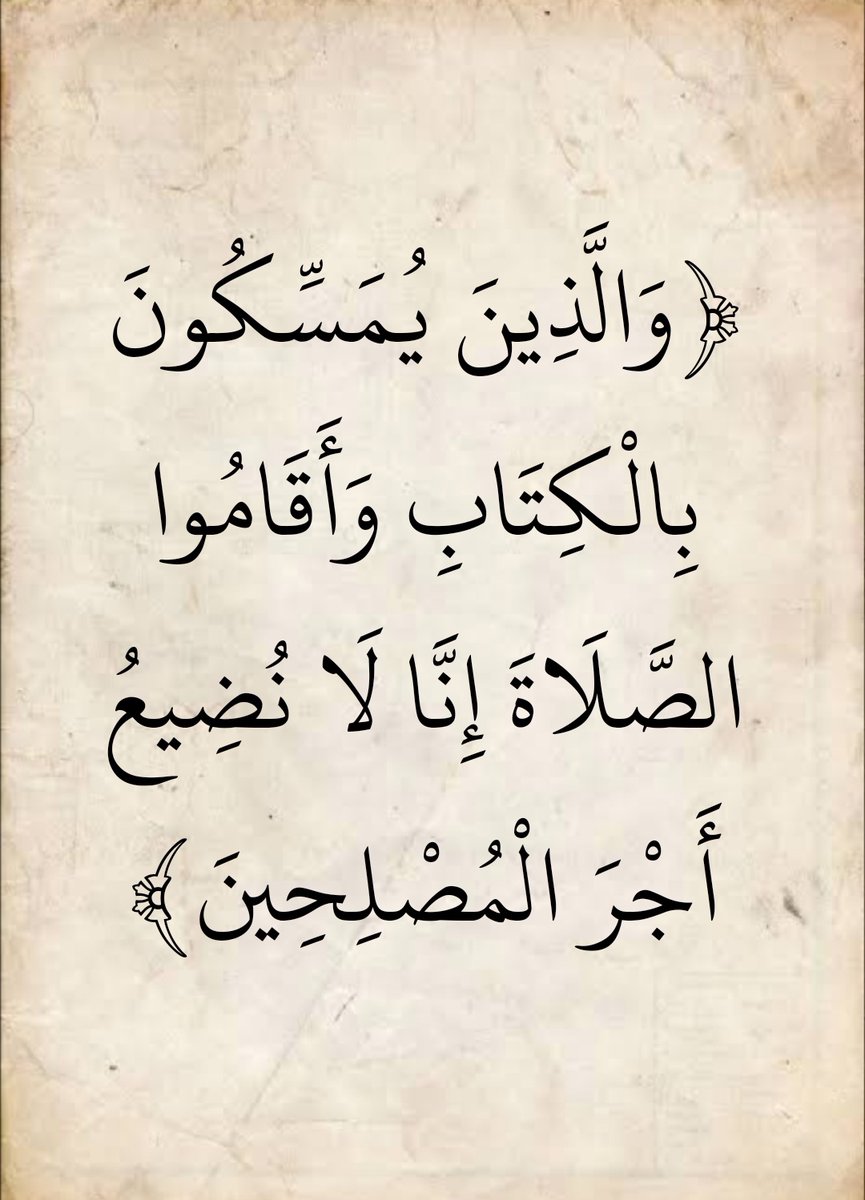 ﴿وَالَّذِينَ يُمَسِّكُونَ
بِالْكِتَابِ وَأَقَامُوا
الصَّلَاةَ إِنَّا لَا نُضِيعُ
أَجْرَ الْمُصْلِحِينَ﴾